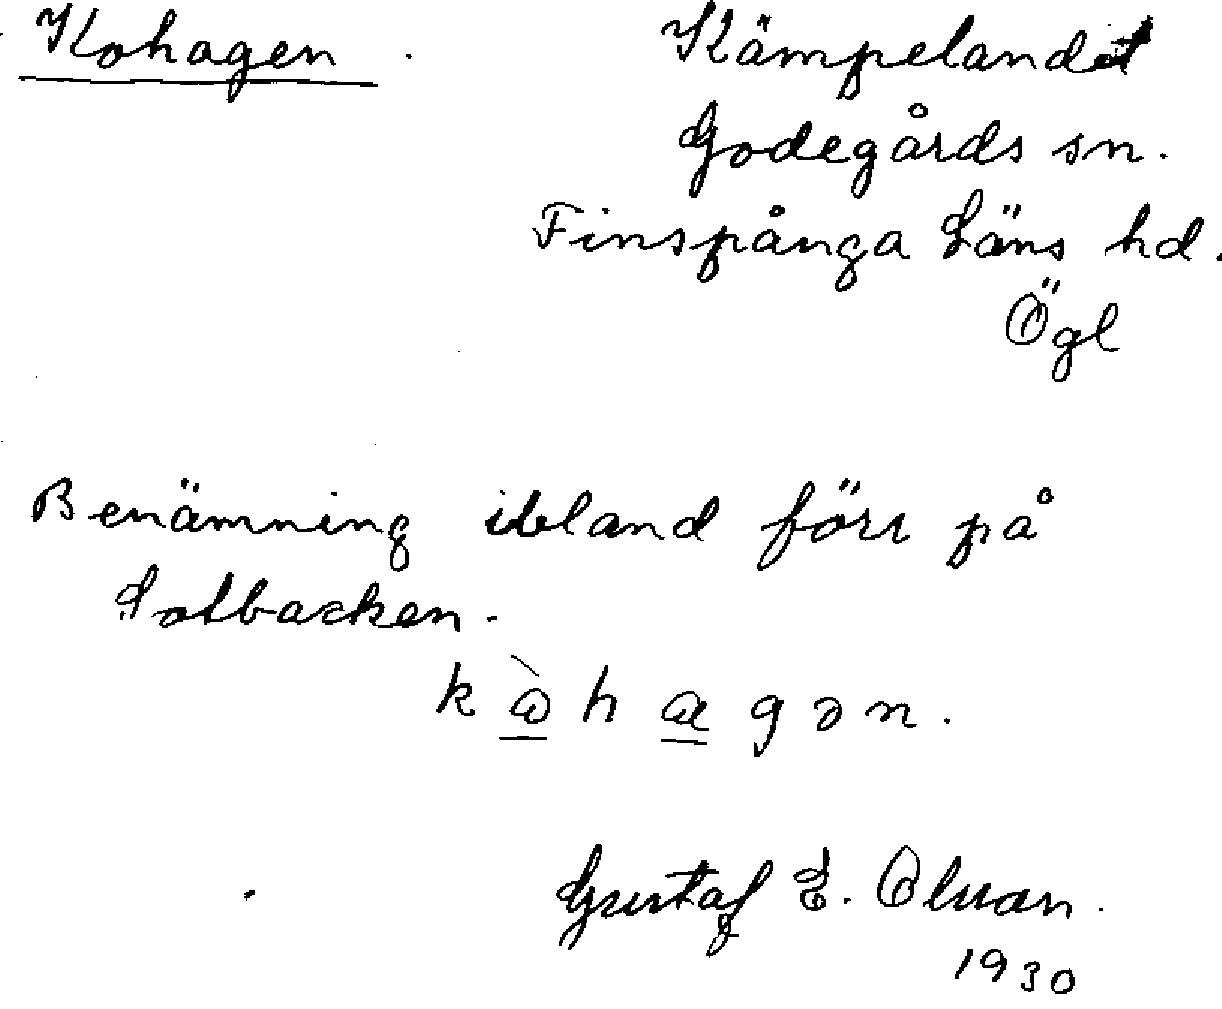 Kohagen.
Kämpelandet
Godegårds sn.
Finspånga Läns hd.
Ögl
Benämning ibland förr på
Solbacken.
Gustaf E. Olson.
1930